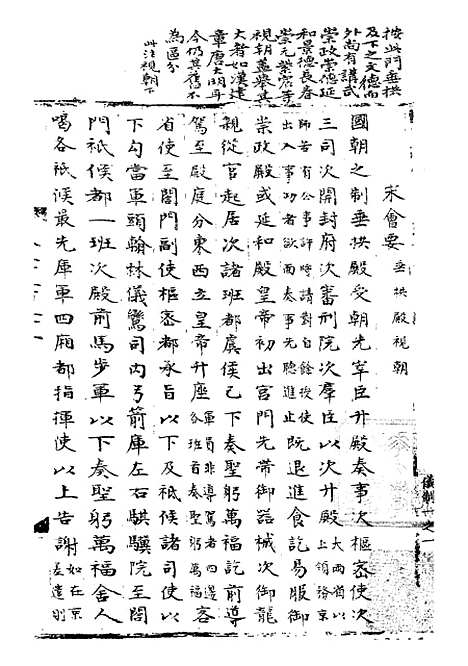 按此門垂拱
及下之文德而
外尚有講武
崇政崇德延
和景德長春
崇元紫宸等
視朝蓋舉其
大者如漢建
章唐大明耳
今仍其舊不
為區分
此注視朝下
宋會要 垂拱殿視朝
國朝之制垂拱殿受朝先宰臣升殿奏事次樞密使次
三司次開封府次審刑院次羣臣以次升殿大兩省以上領務京
師若有公事許時請對自餘授使出入事功者欲面奏事先聽進止既退進食訖易服御
崇政殿或延和殿皇帝初出宮門先帶御器械次御龍
親從官起居次諸班都虞候已下奏聖躬萬福訖前導
駕至殿庭分東西立皇帝升座軍員非導駕者四邊各班首奏聖躬萬福客
省使至閤門副使樞密都承旨以下及祗候諸司使以
下勾當軍頭翰林儀鸞司內弓箭庫左右騏驥院至閤
門祗候都一班次殿前馬步軍以下奏聖躬萬福舍人
喝各祗候最先庫軍四廂都指揮使以上告謝如在京左遣則
儀制一之一